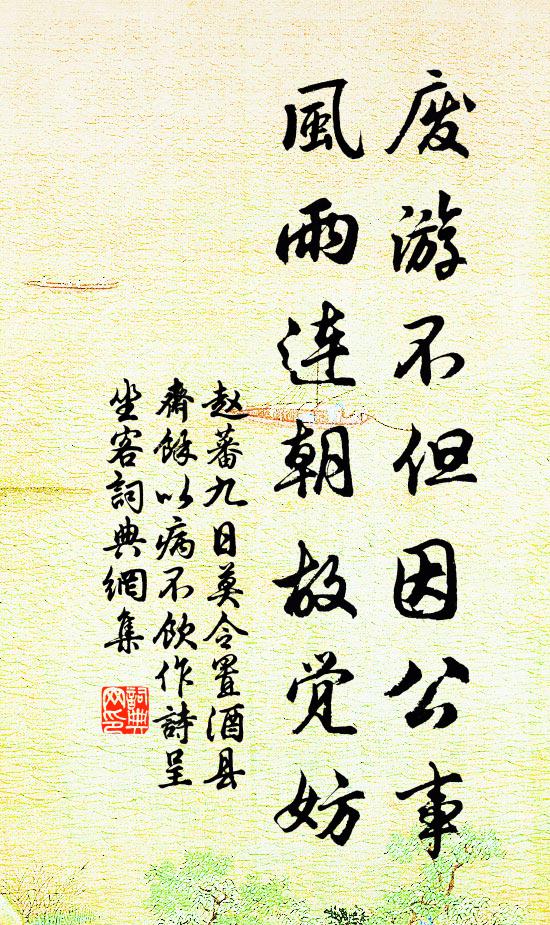 废游不但因公事
風雨连朝故觉妨
赵蕃九日莫令置酒县
齋餘以病不飲作詩呈
坐客詞典網集
詞典网印